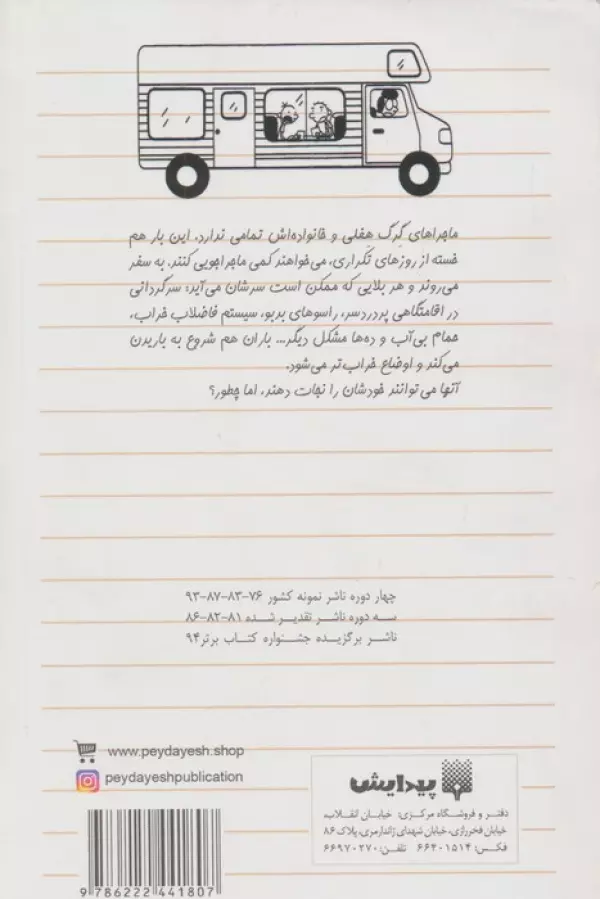 ماجراهای گِرِگ هِفلی و خانواده‌اش تمامی ندارد، این بار هم
خسته از روزهای تکراری، می‌خواهند کمی ماجراجویی کنند. به سفر
می‌روند و هر بلایی که ممکن است سرشان می‌آید؛ سرگردانی
در اقامتگاهی پردردسر، راسوهای بدبو، سیستم فاضلاب خراب،
حمام بی‌آب و ده‌ها مشکل دیگر... باران هم شروع به باریدن
می‌کند و اوضاع خراب‌تر می‌شود.
آنها می‌توانند خودشان را نجات دهند، اما چطور؟
چهار دوره ناشر نمونه کشور ۷۶-۸۳-۸۷-۹۳
سه دوره ناشر تقدیر شده ۸۱-۸۲-۸۶
ناشر برگزیده جشنواره کتاب برتر ۹۴
www.peydayesh.shop
peydayeshpublication
پیدایش
دفتر و فروشگاه مرکزی: خیابان انقلاب،
خیابان فخررازی، خیابان شهدای ژاندارمری، پلاک ۸۶
فکس: ۶۶۴۰۱۵۱۴ تلفن: ۶۶۹۷۰۲۷۰
9 786222 441807